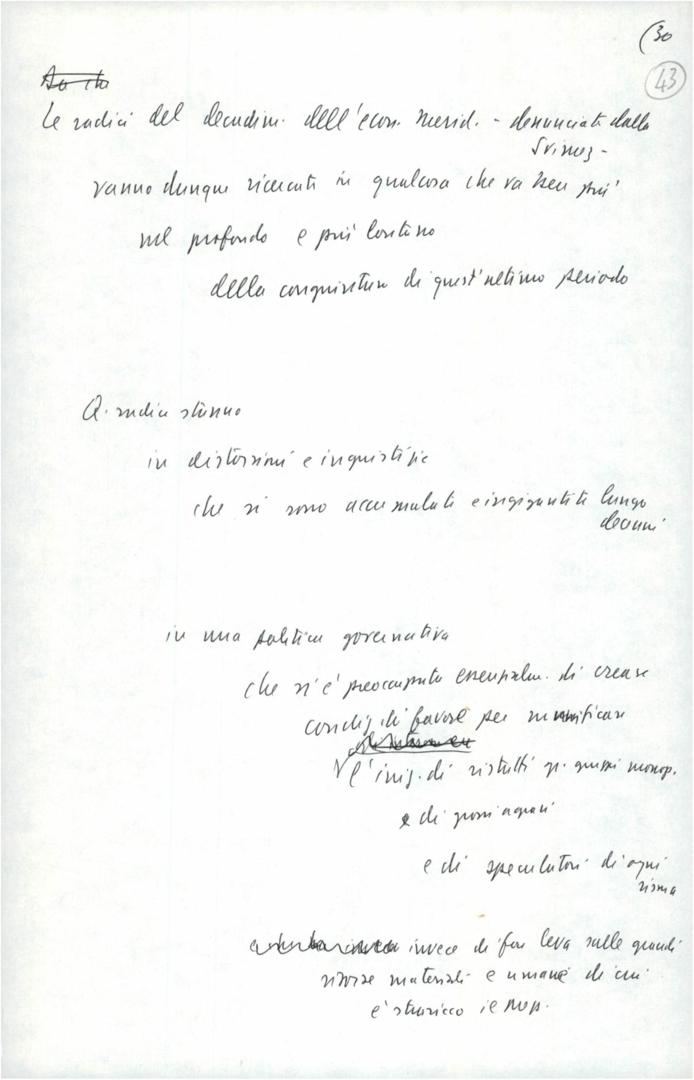 (30
43
Le radici del decadim. dell'econ. merid. - denunciati dalla
Svimez -
vanno dunque ricercati in qualcosa che va ben più
nel profondo e più lontano
della congiuntura di quest'ultimo periodo
Q. radici stanno
in distorsioni e ingiustizie
che si sono accumulate e ingigantite lungo
decenni
in una politica governativa
che si è preoccupata essenzialm. di creare
condiz. di favore per
l'iniz. di ristretti gr. gruppi monop.
e di grossi agrari
e di speculatori di ogni
risma
invece di far leva sulle grandi
risorse materiali e umane di cui
è straricco il Mezz.